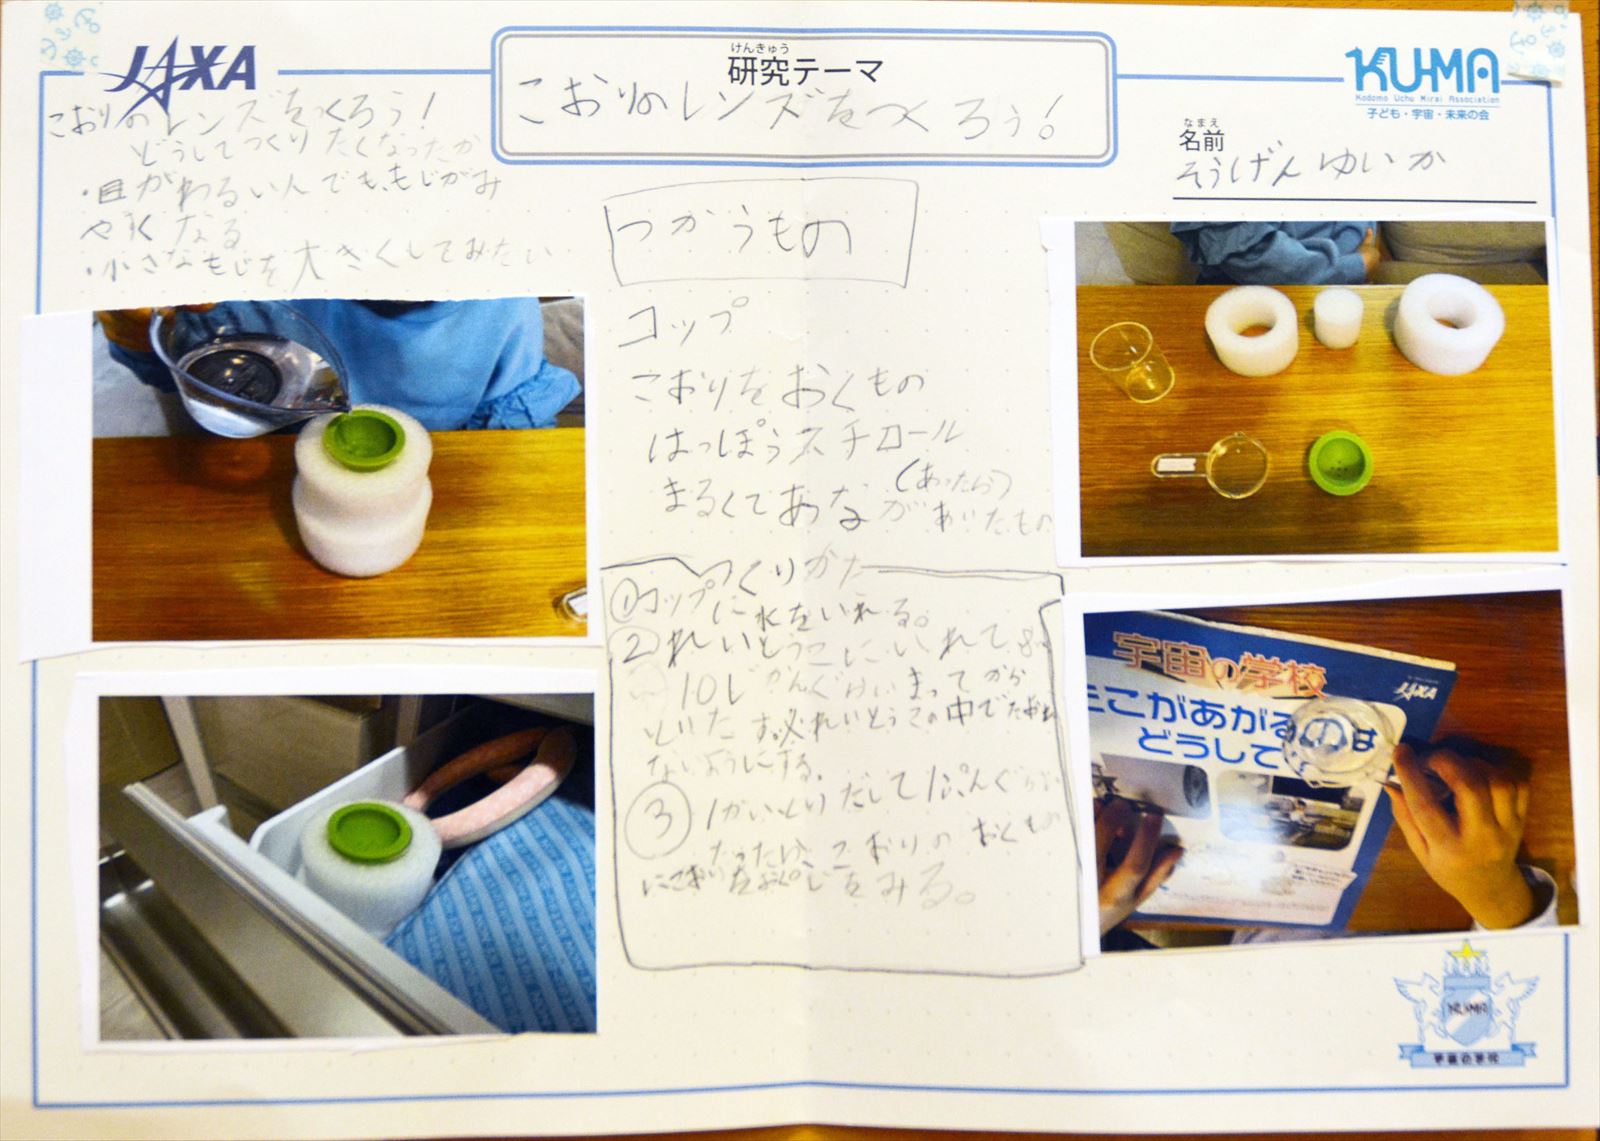 JAXA
けんきゅう
研究テーマ
こおりのレンズをつくろう!
KU-MA
Kodomo Uchu Mirai Association
子ども・宇宙・未来の会
なまえ
名前
そうげんゆいか
こおりのレンズをつくろう!
どうしてつくりたくなったか
・目がわるい人でも、もじがみ
やすくなる
・小さなもじを大きくしてみたい
つかうもの
コップ
こおりをおくもの
はっぽうスチロール
(あったら)
まるくてあながあいたもの
つくりかた
①コップに水をいれる。
②れいとうこにいれて
10じかんぐらいまってから
れいとうこの中でたおれ
ないようにする。
③1かいとりだして1ぷんぐらい
たったら、こおりのおくもの
にこおりをおく。じをみる。
宇宙の学校
JAXA
たこがあがるのは
どうして
KU-MA
宇宙の学校